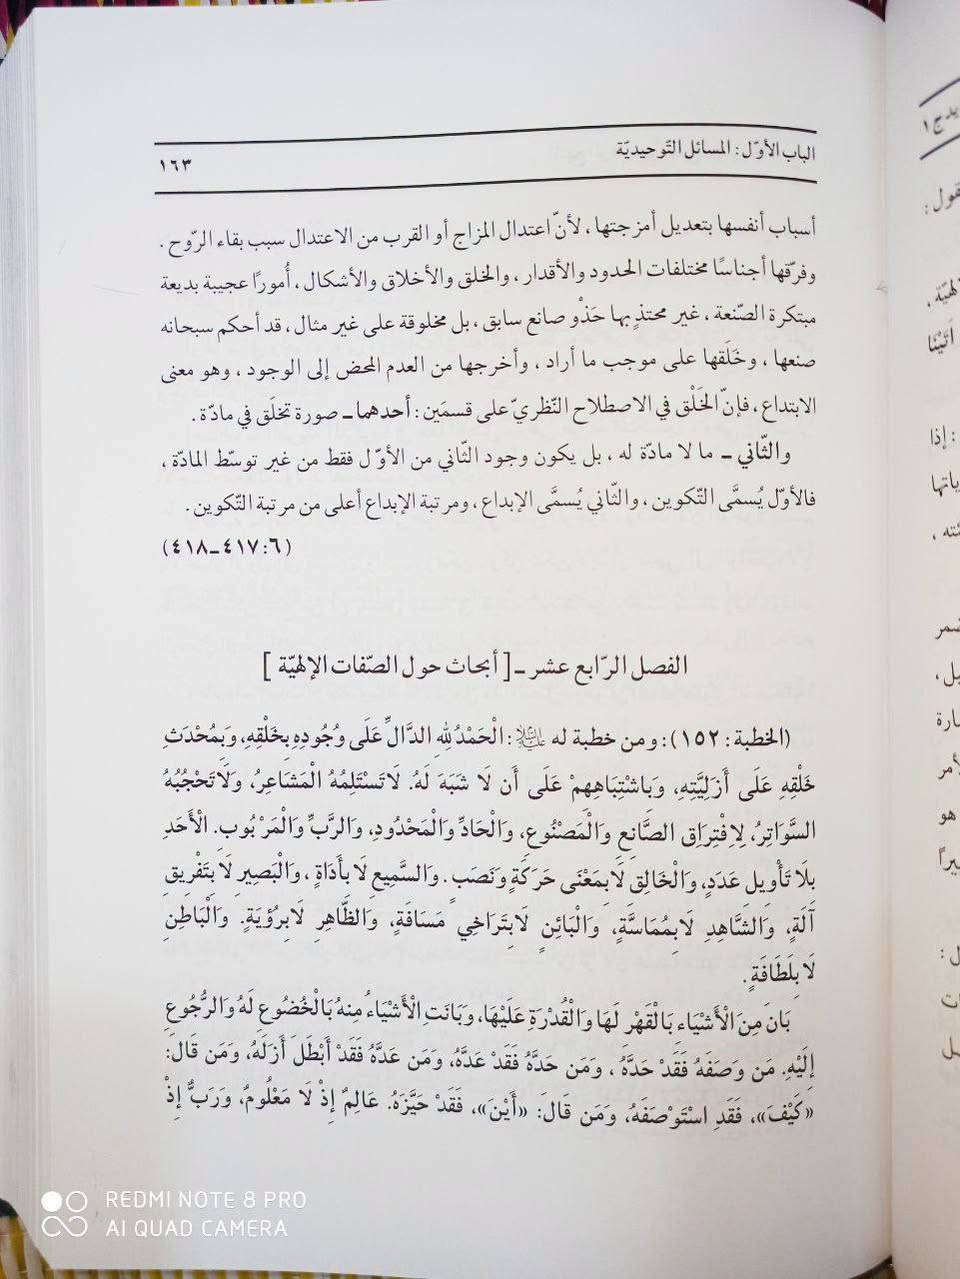 الباب الأوّل: المسائل التّوحيديّة
١٦٣
أسباب أنفسها بتعديل أمزجتها، لأنّ اعتدال المزاج أو القرب من الاعتدال سبب بقاء الرّوح.
وفرّقها أجناسًا مختلفات الحدود والأقدار، والخلق والأخلاق والأشكال، أُمورًا عجيبة بديعة
مبتكرة الصّنعة، غير محتذٍ بها حَذْو صانع سابق، بل مخلوقة على غير مثال، قد أحكم سبحانه
صنعها، وخَلَقها على موجب ما أراد، وأخرجها من العدم المحض إلى الوجود، وهو معنى
الابتداع، فإنّ الخَلْق في الاصطلاح النّظريّ على قسمَين: أحدهما ـ صورة تخلَق في مادّة.
والثّاني ـ ما لا مادّة له، بل يكون وجود الثّاني من الأوّل فقط من غير توسّط المادّة،
فالأوّل يُسمَّى التّكوين، والثّاني يُسمَّى الإبداع، ومرتبة الإبداع أعلى من مرتبة التّكوين.
(٦: ٤١٧ـ٤١٨)
الفصل الرّابع عشر ـ [أبحاث حول الصّفات الإلهيّة]
(الخطبة: ١٥٢): ومن خطبة له عليه السلام: الْحَمْدُ لِلهِ الدَّالِّ عَلَى وُجُودِهِ بِخَلْقِهِ، وَبِمُحْدَثِ
خَلْقِهِ عَلَى أَزَلِيَّتِهِ، وَبَاشْتِبَاهِهِمْ عَلَى أَن لَا شَبَهَ لَهُ. لَا تَسْتَلِمُهُ الْمَشَاعِرُ، وَلَا تَحْجُبُهُ
السَّوَاتِرُ، لِافْتِرَاقِ الصَّانِعِ وَالْمَصْنُوعِ، وَالْحَادِّ وَالْمَحْدُودِ، وَالرَّبِّ وَالْمَرْبُوبِ. الْأَحَدِ
بِلَا تَأْوِيلِ عَدَدٍ، وَالْخَالِقِ لَا بِمَعْنَى حَرَكَةٍ وَنَصَبٍ. وَالسَّمِيعِ لَا بِأَدَاةٍ، وَالْبَصِيرِ لَا بِتَفْرِيقِ
آلَةٍ، وَالشَّاهِدِ لَا بِمُمَاسَّةٍ، وَالْبَائِنِ لَا بِتَرَاخِي مَسَافَةٍ، وَالظَّاهِرِ لَا بِرُؤْيَةٍ. وَالْبَاطِنِ
لَا بِلَطَافَةٍ.
بَانَ مِنَ الْأَشْيَاءِ بَالْقَهْرِ لَهَا وَالْقُدْرَةِ عَلَيْهَا، وَبَانَتِ الْأَشْيَاءُ مِنهُ بَالْخُضُوعِ لَهُ وَالرُّجُوعِ
إِلَيْهِ. مَن وَصَفَهُ فَقَدْ حَدَّهُ، وَمَن حَدَّهُ فَقَدْ عَدَّهُ، وَمَن عَدَّهُ فَقَدْ أَبْطَلَ أَزَلَهُ، وَمَن قَالَ:
«كَيْفَ»، فَقَدِ اسْتَوْصَفَهُ، وَمَن قَالَ: «أَيْنَ»، فَقَدْ حَيَّزَهُ. عَالِمٌ إِذْ لَا مَعْلُومٌ، وَرَبٌّ إِذْ
REDMI NOTE 8 PRO
AI QUAD CAMERA